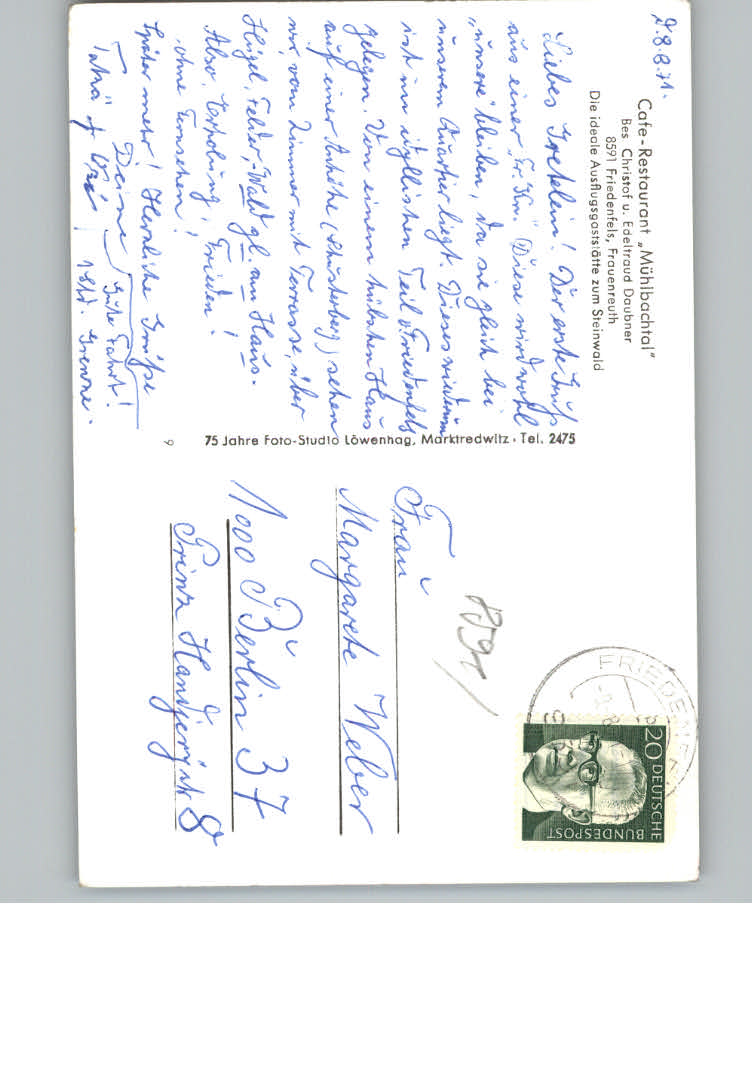 D. 8.8.71.
Cafe-Restaurant „Mühlbachtal"
Bes Christof u. Edeltraud Daubner
8591 Friedenfels, Frauenreuth
Die ideale Ausflugsgaststätte zum Steinwald
Liebes Gretelein! Der erste Gruß
aus einer „Fr. Km." Diese wird wohl
„unsere" bleiben, da sie gleich bei
unserem Quartier liegt. Dieses wiederum
ist im idyllischen Teil v. Friedenfels
gelegen. Von einem hübschen Haus
auf einer Anhöhe (Schusterberg) sehen
wir vom Zimmer mit Terrasse, über
Hügel, Felder, Wald gl. am Haus.
Also, Erholung, Frieden!
ohne Fernsehen!
Später mehr! Herzliche Grüße
Deine
Gute Fahrt!
1 Std. Grenze.
75 Jahre Foto-Studio Löwenhag, Marktredwitz · Tel. 2475
9
8591
Frau
Margarete Weber
1000 Berlin 37
Prinz Handjerystr 8
FRIEDENFELS
20 DEUTSCHE
BUNDESPOST